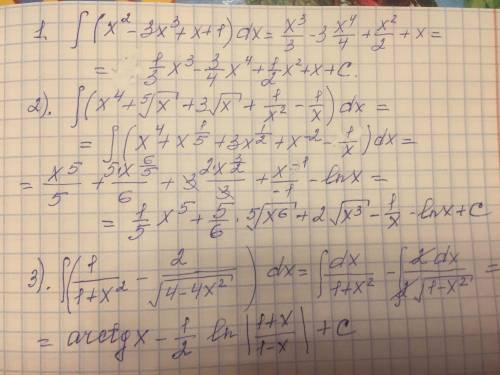 1. ∫(x² - 3x³ + x + 1) dx = x³/3 - 3 x⁴/4 + x²/2 + x =
= 1/3 x³ - 3/4 x⁴ + 1/2 x² + x + C.
2). ∫(x⁴ + ⁵√x + 3√x + 1/x² - 1/x) dx =
= ∫(x⁴ + x^(1/5) + 3x^(1/2) + x⁻² - 1/x) dx =
= x⁵/5 + 5·x^(6/5)/6 + 3 2x^(3/2)/3 + x⁻¹/-1 - lnx =
= 1/5 x⁵ + 5/6 · ⁵√x⁶ + 2√x³ - 1/x - lnx + C
3). ∫(1/(1+x²) - 2/√(4-4x²)) dx = ∫dx/(1+x²) - ∫2dx/(2√(1-x²)) =
= arctgx - 1/2 ln|(1+x)/(1-x)| + C